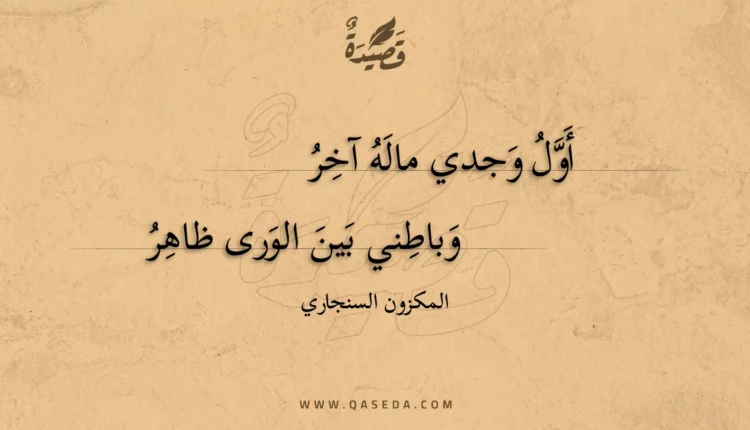 قَصِيْدَةٌ
أَوَّلُ وَجدي مالَهُ آخِرُ
وَباطِني بَينَ الوَرى ظاهِرُ
المكزون السنجاري
WWW.QASEDA.COM